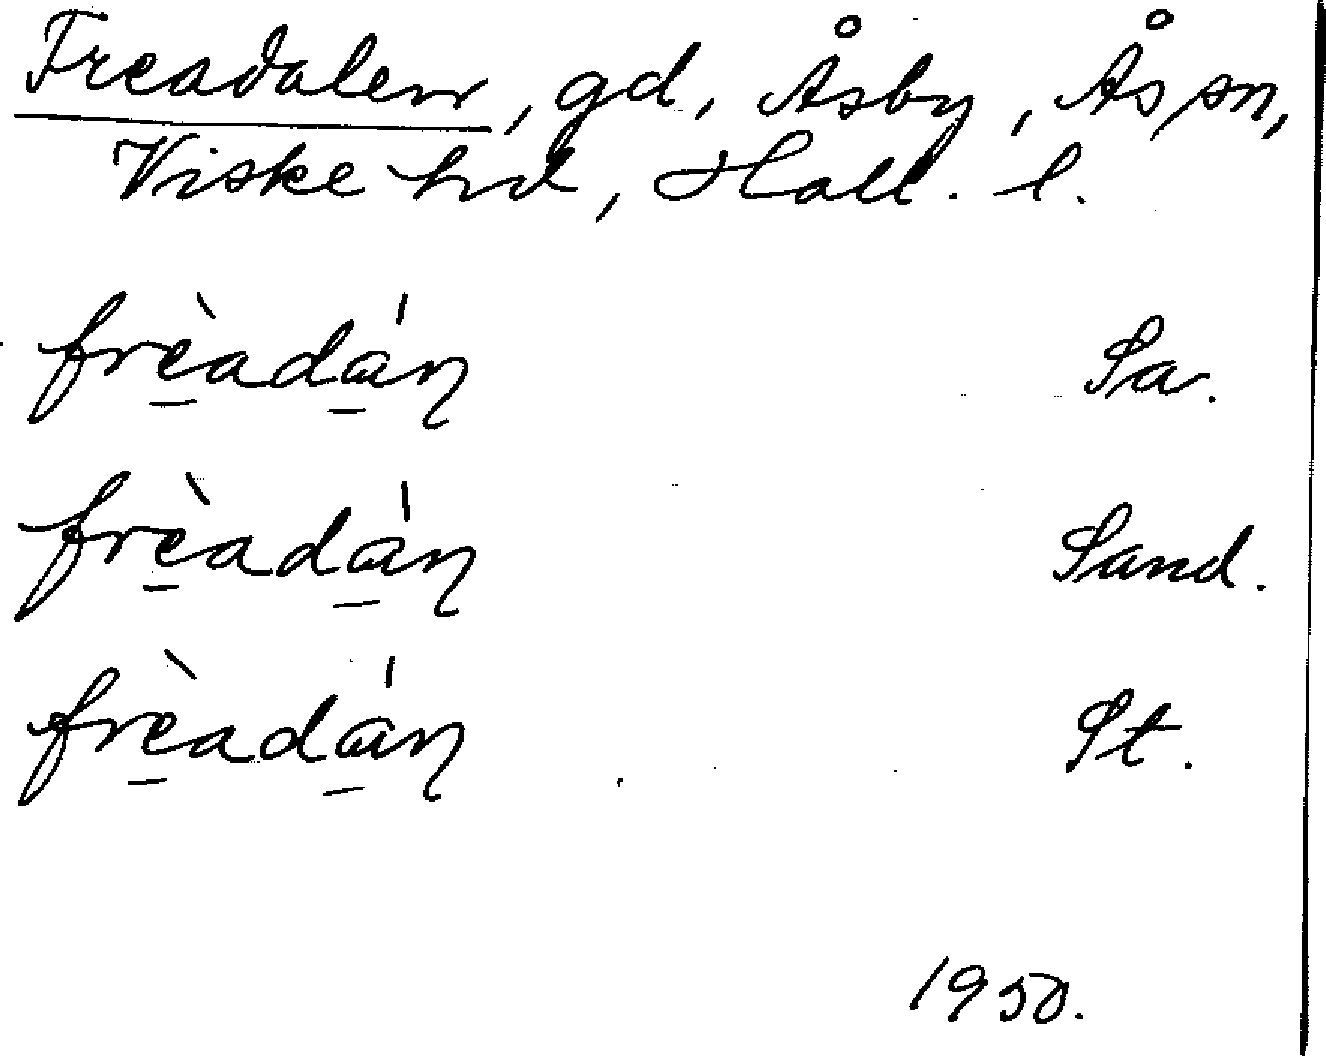 Freadalen, gd, Åsby, Ås sn,
Viske hd, Hall. l.
frèadáŋ Sa.
frèadáŋ Sand.
frèadáŋ St.
1950.